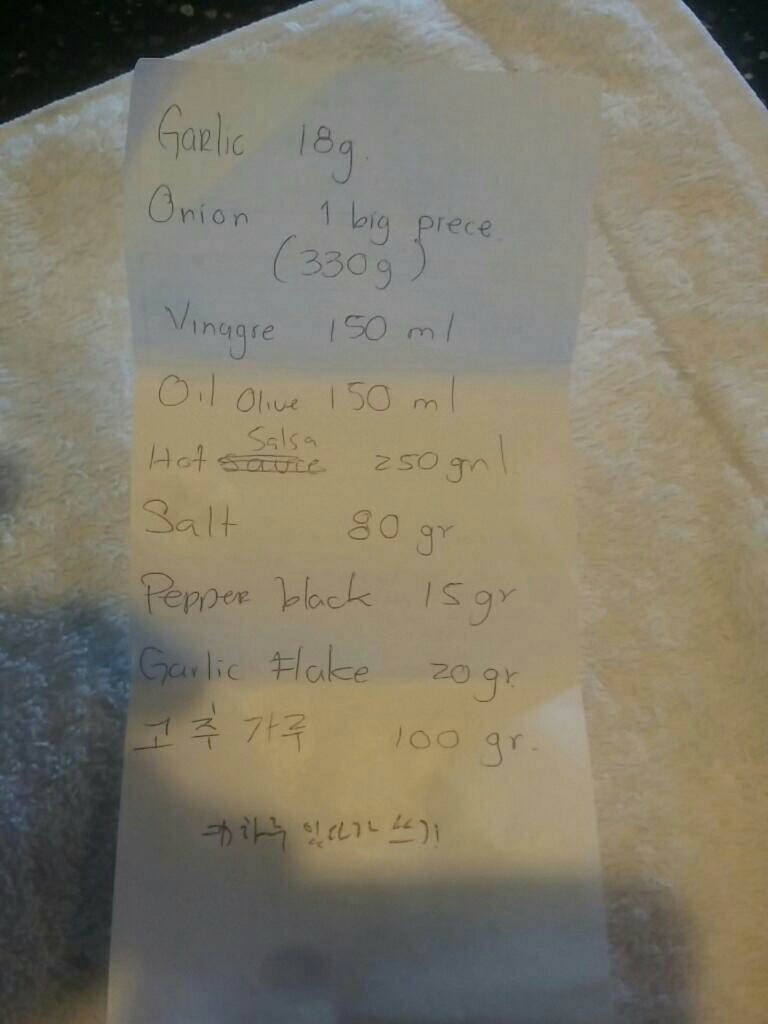 Garlic 18g.
Onion 1 big prece
(330g)
Vinagre 150 ml
Oil Olive 150 ml
Salsa
Hot sauce 250 gml
Salt 80 gr
Pepper black 15 gr
Garlic Flake 20 gr.
고추가루 100 gr.
하루 있따가 쓰기